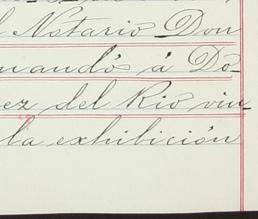 l Notario Don
nandó á Do-
ez del Rio viu-
la exhibición